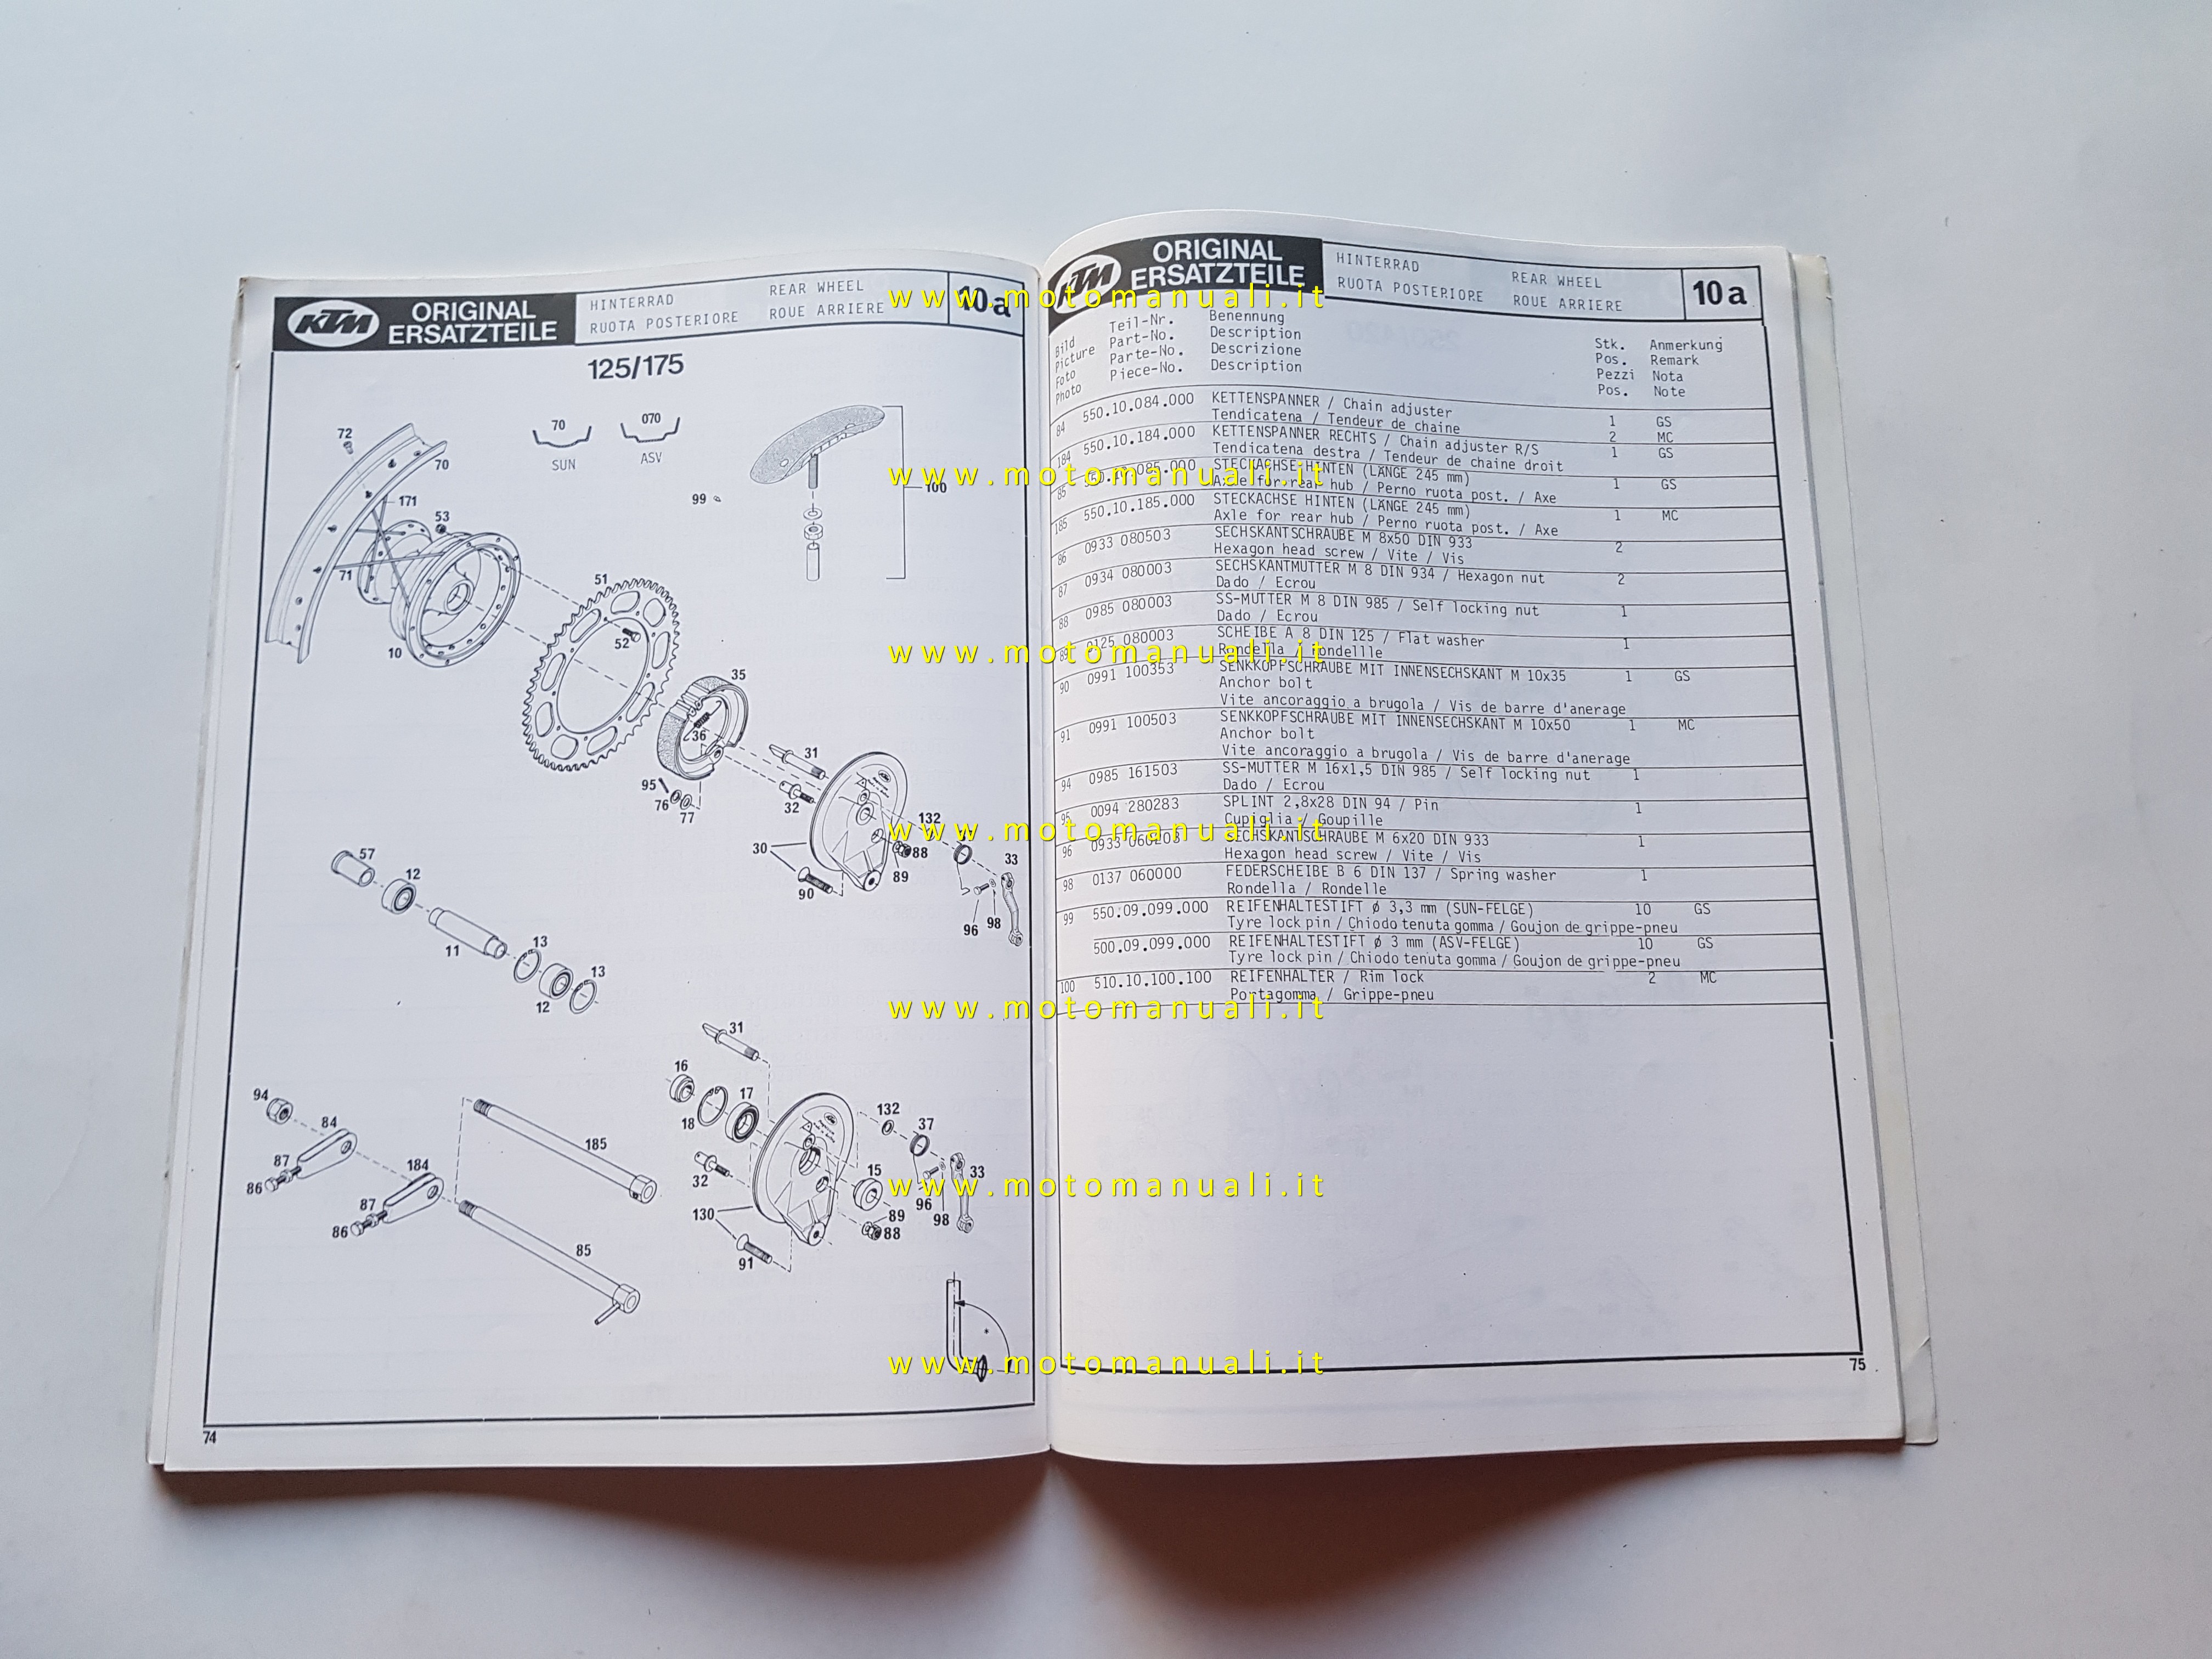 KTM ORIGINAL
ERSATZTEILE
HINTERRAD REAR WHEEL
RUOTA POSTERIORE ROUE ARRIERE
10a
125/175
72
70
171
53
71
10
70
SUN
070
ASV
99
100
51
52
35
36
95
76
77
31
32
132
30
88
89
90
33
96
98
57
12
11
13
12
13
31
16
17
18
32
132
37
33
15
96
98
130
89
88
91
94
84
87
86
184
87
86
185
85
74
KTM ORIGINAL
ERSATZTEILE
HINTERRAD REAR WHEEL
RUOTA POSTERIORE ROUE ARRIERE
10a
Bild Teil-Nr. Benennung Stk. Anmerkung
Picture Part-No. Description Pos. Remark
Foto Parte-No. Descrizione Pezzi Nota
Photo Piece-No. Description Pos. Note
84 550.10.084.000 KETTENSPANNER / Chain adjuster 1 GS
Tendicatena / Tendeur de chaine 2 MC
184 550.10.184.000 KETTENSPANNER RECHTS / Chain adjuster R/S 1 GS
Tendicatena destra / Tendeur de chaine droit
85 550.10.085.000 STECKACHSE HINTEN (LÄNGE 245 mm) 1 GS
Axle for rear hub / Perno ruota post. / Axe
185 550.10.185.000 STECKACHSE HINTEN (LÄNGE 245 mm) 1 MC
Axle for rear hub / Perno ruota post. / Axe
86 0933 080503 SECHSKANTSCHRAUBE M 8x50 DIN 933 2
Hexagon head screw / Vite / Vis
87 0934 080003 SECHSKANTMUTTER M 8 DIN 934 / Hexagon nut 2
Dado / Ecrou
88 0985 080003 SS-MUTTER M 8 DIN 985 / Self locking nut 1
Dado / Ecrou
89 0125 080003 SCHEIBE A 8 DIN 125 / Flat washer 1
Rondella / Rondellle
90 0991 100353 SENKKOPFSCHRAUBE MIT INNENSECHSKANT M 10x35 1 GS
Anchor bolt
Vite ancoraggio a brugola / Vis de barre d'anerage
91 0991 100503 SENKKOPFSCHRAUBE MIT INNENSECHSKANT M 10x50 1 MC
Anchor bolt
Vite ancoraggio a brugola / Vis de barre d'anerage
94 0985 161503 SS-MUTTER M 16x1,5 DIN 985 / Self locking nut 1
Dado / Ecrou
95 0094 280283 SPLINT 2,8x28 DIN 94 / Pin 1
Cupiglia / Goupille
96 0933 060203 SECHSKANTSCHRAUBE M 6x20 DIN 933 1
Hexagon head screw / Vite / Vis
98 0137 060000 FEDERSCHEIBE B 6 DIN 137 / Spring washer 1
Rondella / Rondelle
99 550.09.099.000 REIFENHALTESTIFT ø 3,3 mm (SUN-FELGE) 10 GS
Tyre lock pin / Chiodo tenuta gomma / Goujon de grippe-pneu
500.09.099.000 REIFENHALTESTIFT ø 3 mm (ASV-FELGE) 10 GS
Tyre lock pin / Chiodo tenuta gomma / Goujon de grippe-pneu
100 510.10.100.100 REIFENHALTER / Rim lock 2 MC
Portagomma / Grippe-pneu
75
www.motomanuali.it
www.motomanuali.it
www.motomanuali.it
www.motomanuali.it
www.motomanuali.it
www.motomanuali.it
www.motomanuali.it